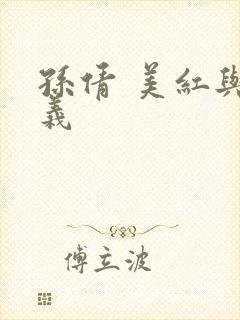 孫倩 美紅與
義
傅立波